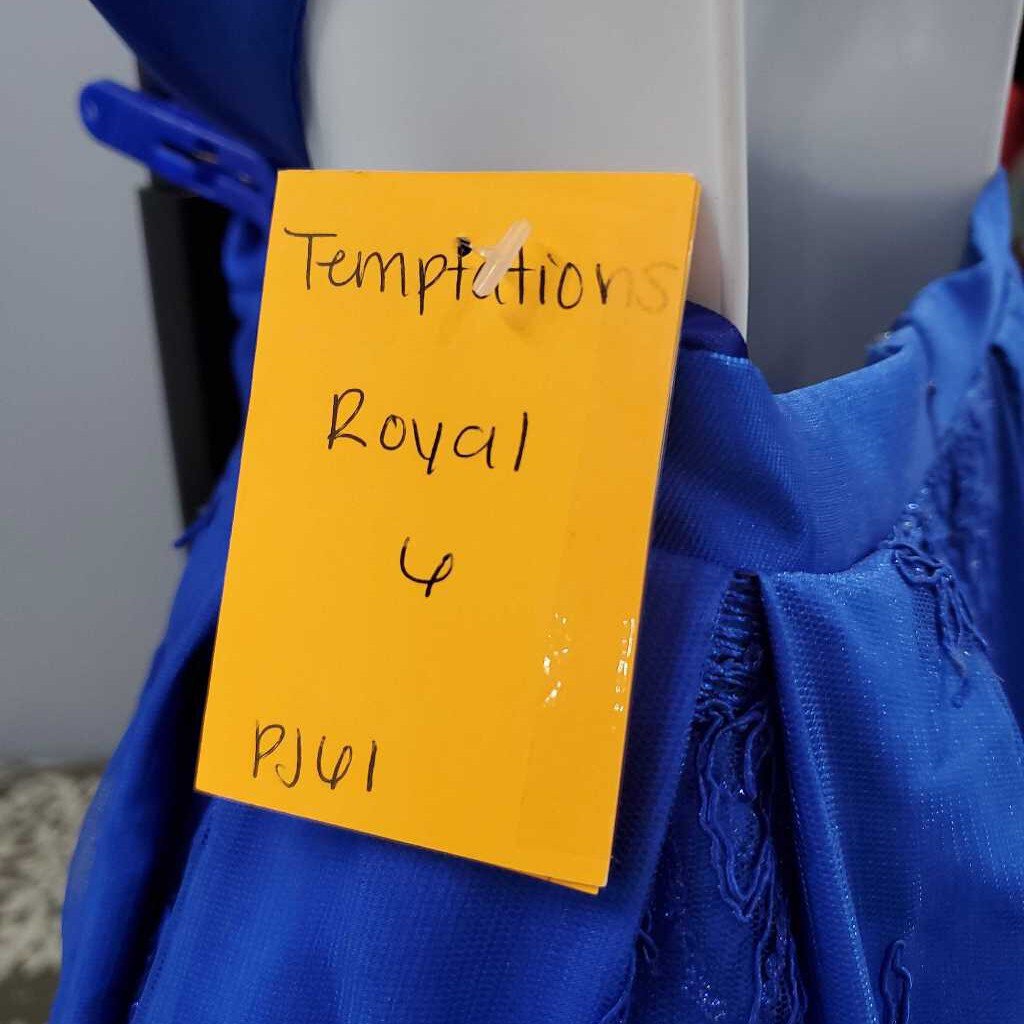 Temptations
Royal
6
PJ61